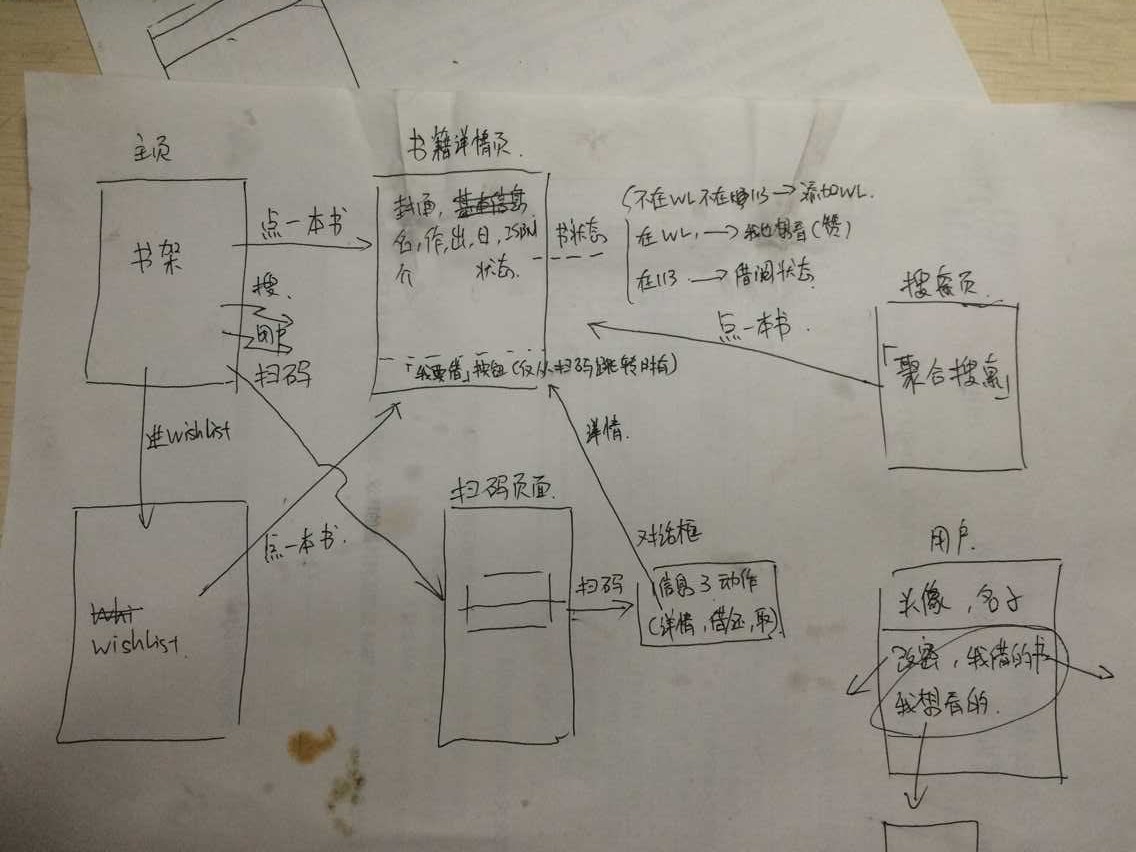 主页
书架
点一本书
搜.
用户
扫码
进wishlist
wishlist.
点一本书.
书籍详情页.
封面, 基本信息
名,作,出,日,ISBN
介 状态.
书状态
「我要借」按钮(仅从扫码跳转时有)
不在WL不在113→添加WL.
在WL,→我也想看(赞)
在113→借阅状态
点一本书.
搜索页.
「聚合搜索」
详情.
扫码页面.
扫码
对话框
信息3动作
(详情,借还,取)
用户.
头像,名子
改密,我借的书
我想看的.